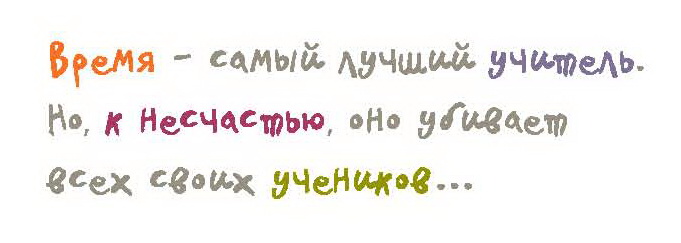 Время - самый лучший учитель.
Но, к несчастью, оно убивает
всех своих учеников...